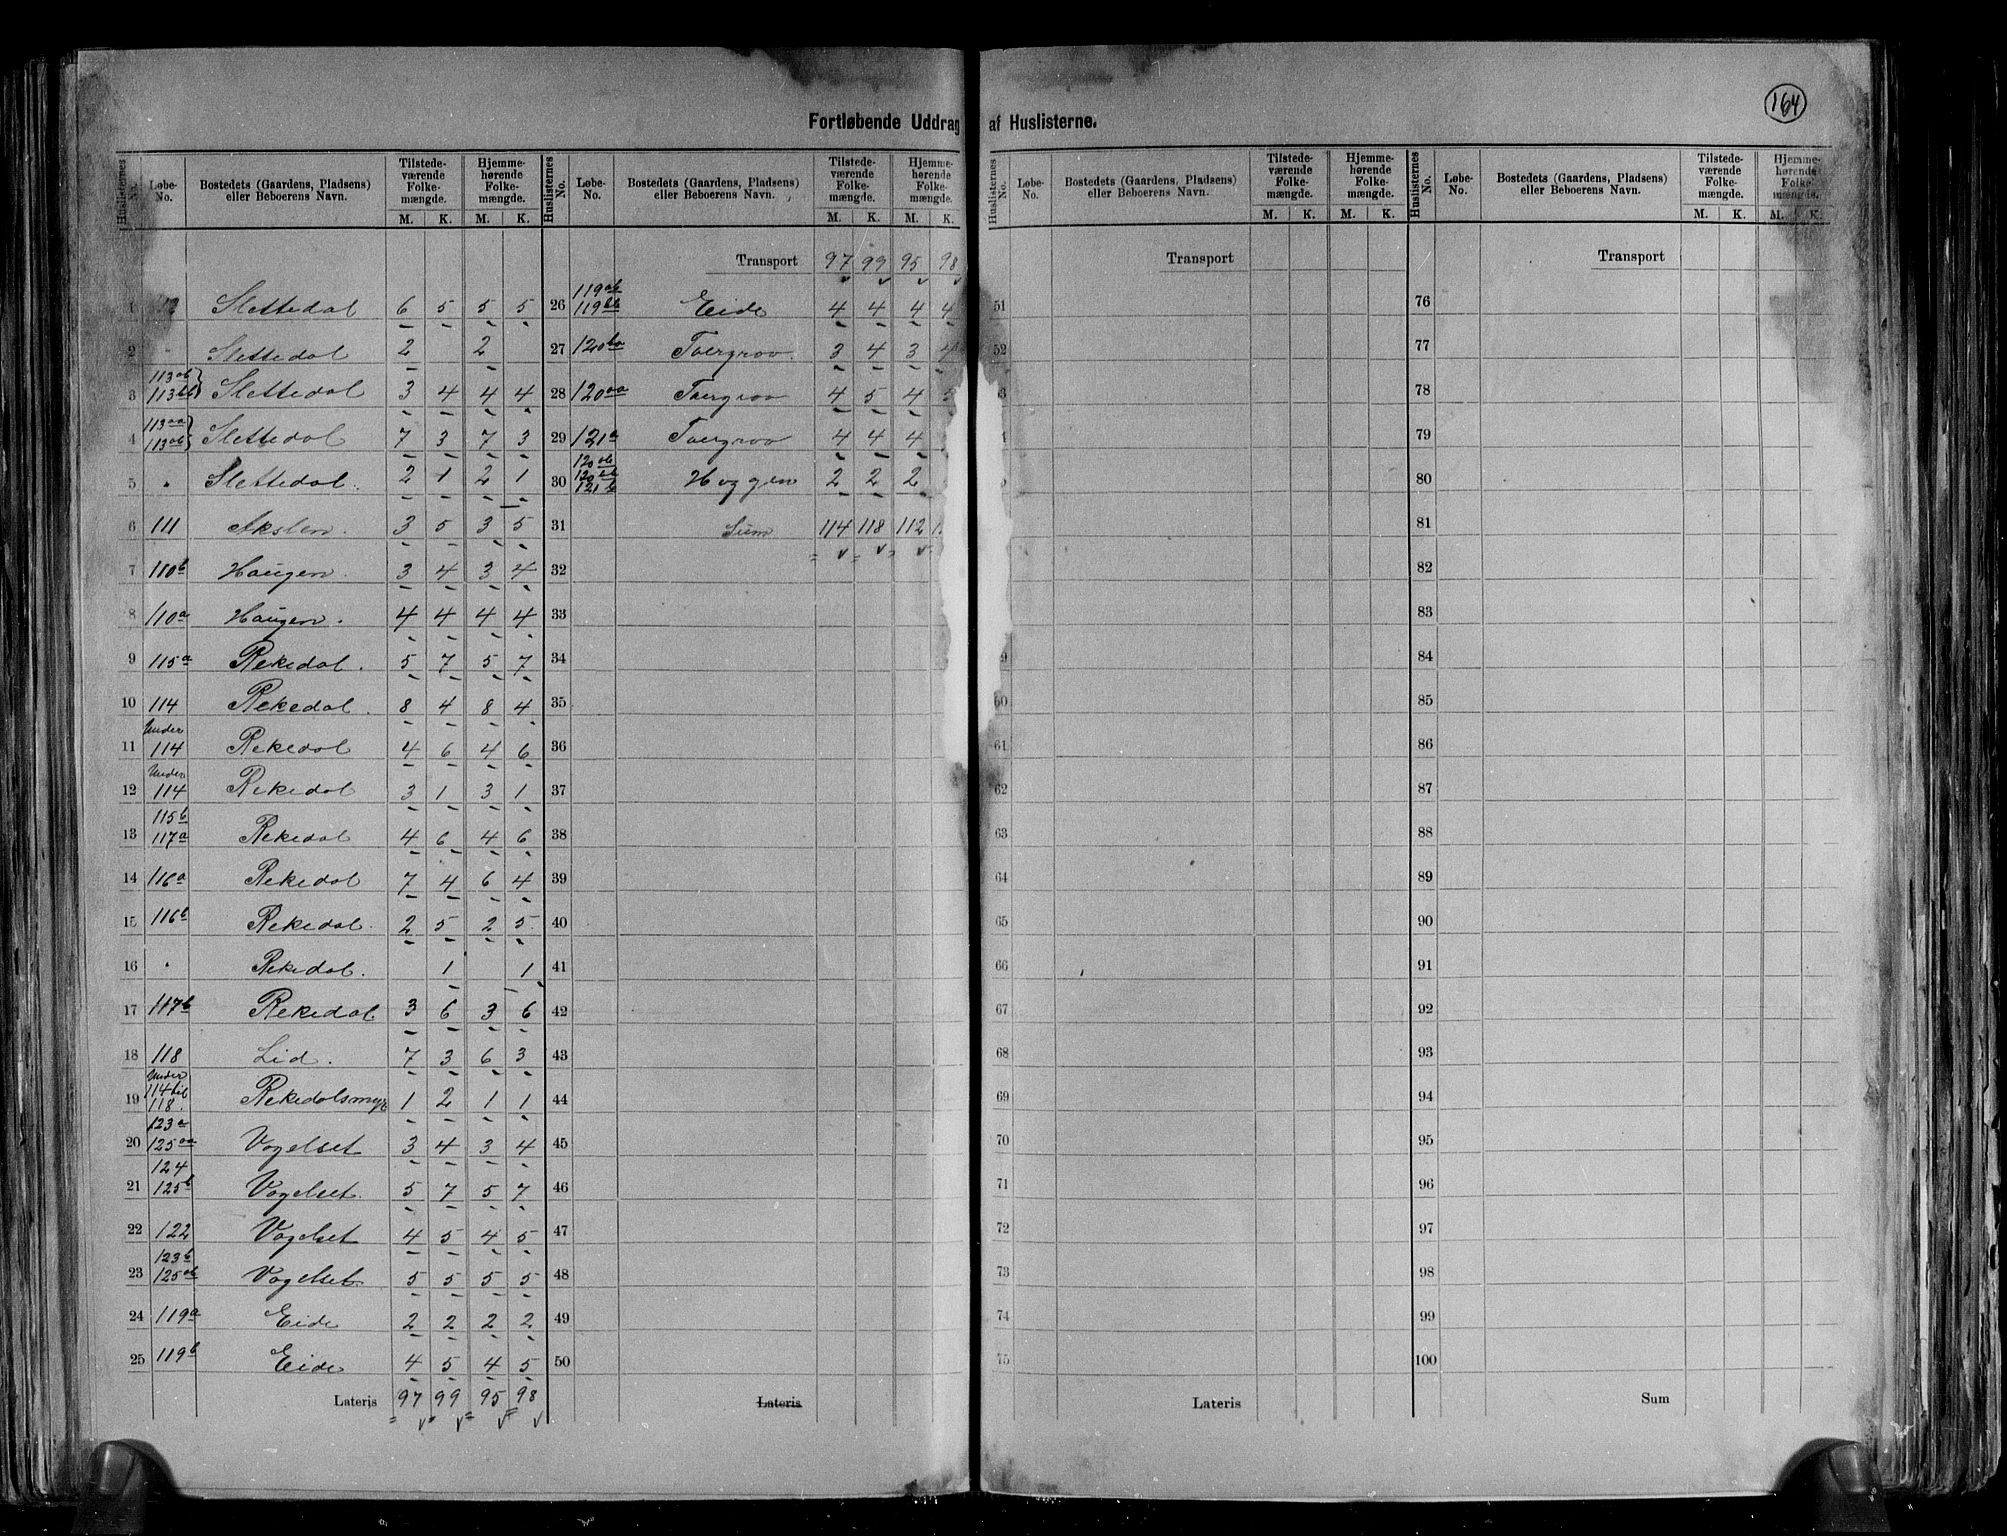 164
Fortløbende Uddrag af Huslisterne.
Huslisternes No. Løbe-No. Bostedets (Gaardens, Pladsens) eller Beboerens Navn. Tilstedeværende Folkemængde. M. K. Hjemmehørende Folkemængde. M. K.
1 Slettedal 6 5 5 5
2 " Slettedal 2 2
3 113ab 113bb Slettedal 3 4 4 4
4 113aa 113ab Slettedal 7 3 7 3
5 " Slettedal. 2 1 2 1
6 111 Akslen. 3 5 3 5
7 110b Haugen. 3 4 3 4
8 110a Haugen. 4 4 4 4
9 115a Rekedal. 5 7 5 7
10 114 Rekedal. 8 4 8 4
11 Under 114 Rekedal 4 6 4 6
12 Under 114 Rekedal 3 1 3 1
13 115b 117a Rekedal 4 6 4 6
14 116a Rekedal 7 4 6 4
15 116b Rekedal. 2 5 2 5
16 " Rekedal. 1 1
17 117b Rekedal. 3 6 3 6
18 118 Lid. 7 3 6 3
19 Under 114 til 118. Rekedalsmyr 1 2 1 1
20 123a 125aa Vagelset 3 4 3 4
21 124 125b Vagelset. 5 7 5 7
22 122 Vagelset 4 5 4 5
23 123b 125ab Vagelset. 5 5 5 5
24 119a Eide 2 2 2 2
25 119b Eide 4 5 4 5
Lateris 97 99 95 98
Huslisternes No. Løbe-No. Bostedets (Gaardens, Pladsens) eller Beboerens Navn. Tilstedeværende Folkemængde. M. K. Hjemmehørende Folkemængde. M. K.
Transport 97 99 95 98
26 119ab 119bb Eide 4 4 4 4
27 120ba Tvergrov. 3 4 3 4
28 120aa Tvergrov 4 5 4
29 121a Tvergrov 4 4 4
30 120ab 120bb 121b Haggen 2 2 2
31 Sum 114 118 112
32
33
34
35
36
37
38
39
40
41
42
43
44
45
46
47
48
49
50
Lateris
Huslisternes No. Løbe-No. Bostedets (Gaardens, Pladsens) eller Beboerens Navn. Tilstedeværende Folkemængde. M. K. Hjemmehørende Folkemængde. M. K.
Transport
51
52
60
61
62
63
64
65
66
67
68
69
70
71
72
73
74
75
Lateris
Huslisternes No. Løbe-No. Bostedets (Gaardens, Pladsens) eller Beboerens Navn. Tilstedeværende Folkemængde. M. K. Hjemmehørende Folkemængde. M. K.
Transport
76
77
78
79
80
81
82
83
84
85
86
87
88
89
90
91
92
93
94
95
96
97
98
99
100
Sum